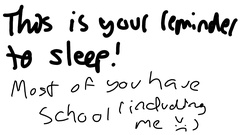 This is your reminder
to sleep!
Most of you have
school (including
me :()